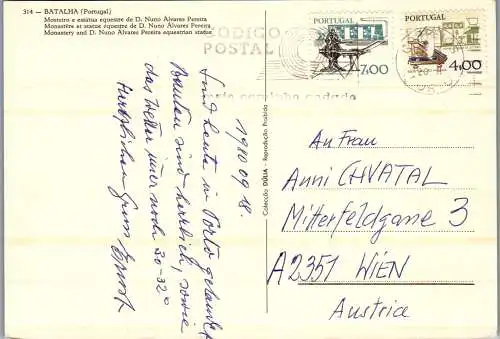 314 — BATALHA (Portugal)
Mosteiro e estátua equestre de D. Nuno Álvares Pereira
Monastère et statue équestre de D. Nuno Álvares Pereira
Monastery and D. Nuno Álvares Pereira equestrian statue
CÓDIGO
POSTAL
PORTUGAL
7,00
PORTUGAL
4,00
1980 09 18.
Sind heute in Porto gelandet
Bauten sind herrlich, sowie
das Wetter immer noch 30-32°
Herzlichen Gruss Ernst
Colecção DÚLIA - Reprodução Proibida
An Frau
Anni CHVATAL
Mitterfeldgasse 3
A2351 WIEN
Austria